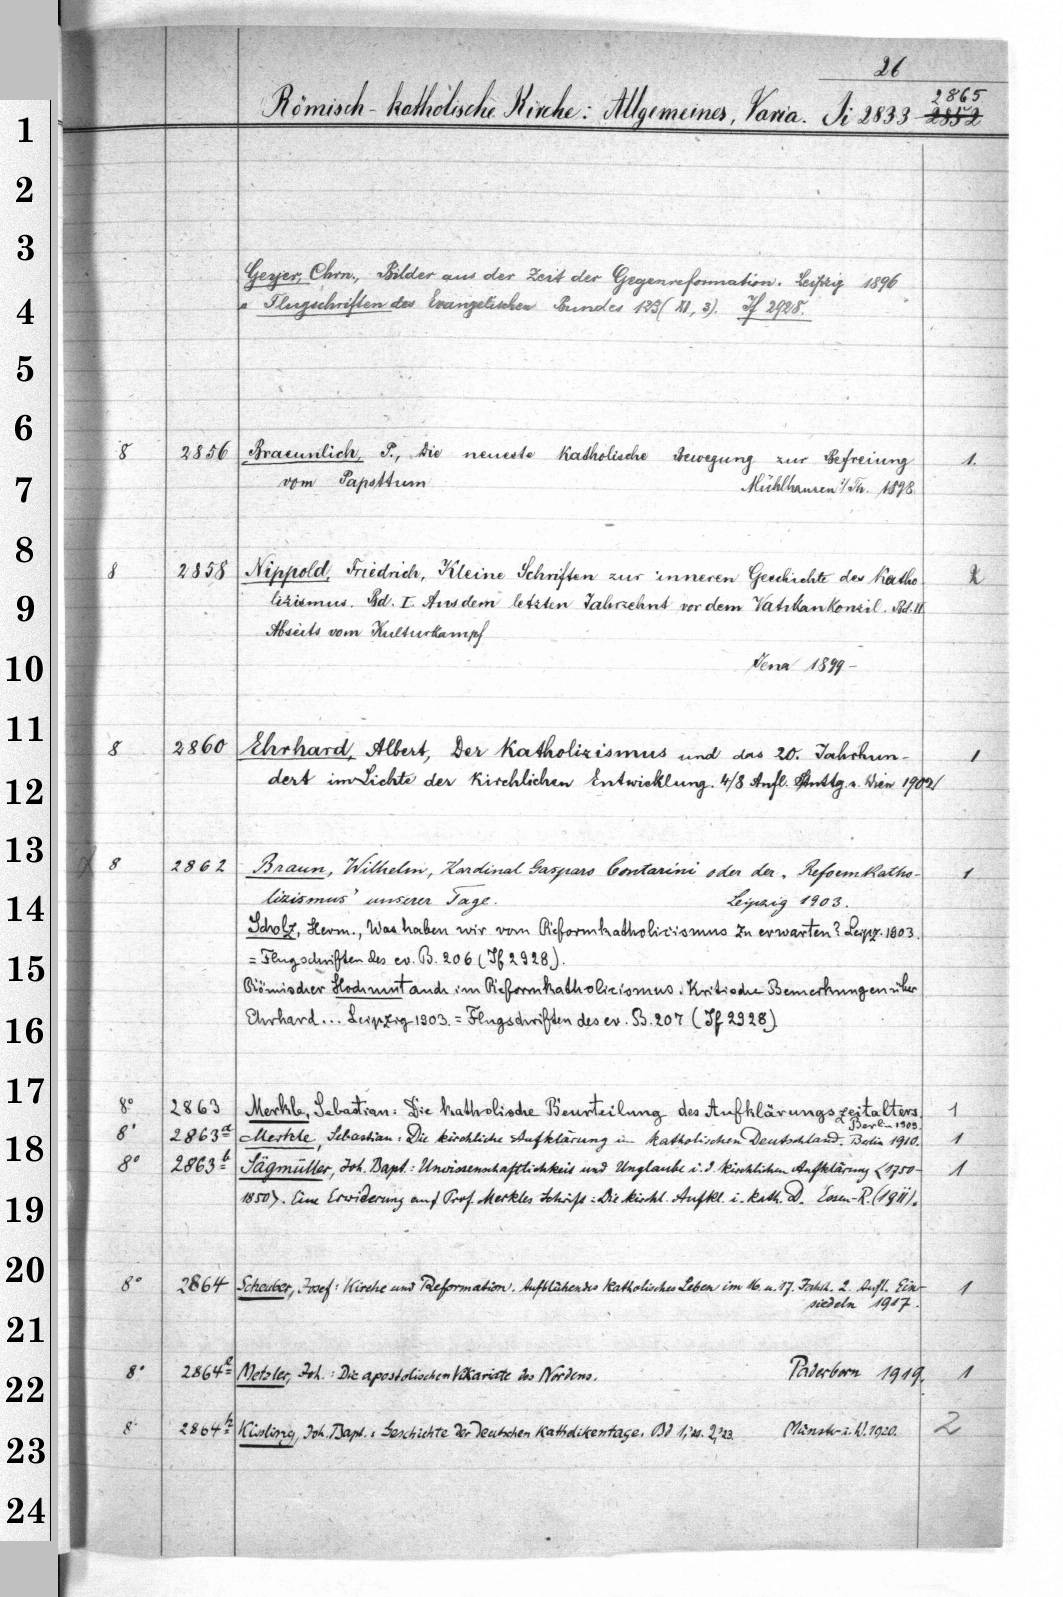 26
Römisch-katholische Kirche: Allgemeines, Varia. Ji 2833 - 2852
2865
Geyer, Chrn., Bilder aus der Zeit der Gegenreformation. Leipzig 1896
= Flugschriften des Evangelischen Bundes 123 (XI, 3). Jf 2928.
8 2856 Braeunlich, P., Die neueste katholische Bewegung zur Befreiung 1.
vom Papsttum Mühlhausen i/Th. 1898.
8 2858 Nippold, Friedrich, Kleine Schriften zur inneren Geschichte des Katho
lizismus. Bd. I. Aus dem letzten Jahrzehnt vor dem Vatikankonzil. Bd. II
Abseits vom Kulturkampf
Jena 1899-
8 2860 Ehrhard, Albert, Der Katholizismus und das 20. Jahrhun- 1
dert im Lichte der kirchlichen Entwicklung. 4/8 Aufl. Stuttg. u. Wien 1902
8 2862 Braun, Wilhelm, Kardinal Gasparo Contarini oder der „Reformkatho- 1
lizismus" unserer Tage. Leipzig 1903.
Scholz, Herm., Was haben wir vom Reformkatholicismus zu erwarten? Leipz. 1903.
= Flugschriften des ev. B. 206 (Jf 2928).
Römischer Hochmut auch im Reformkatholicismus. Kritische Bemerkungen über
Ehrhard... Leipzig 1903. = Flugschriften des ev. B. 207 (Jf 2928)
8° 2863 Merkle, Sebastian: Die katholische Beurteilung des Aufklärungszeitalters. 1
Berlin 1909.
8° 2863a Merkle, Sebastian: Die kirchliche Aufklärung im katholischen Deutschland. Berlin 1910. 1
8° 2863b Sägmüller, Joh. Bapt.: Unwissenschaftlichkeit und Unglaube i. d. kirchlichen Aufklärung <1750- 1
1850>. Eine Erwiderung auf Prof. Merkles Schrift: Die kirchl. Aufkl. i. kath. D. Essen-R. (1911).
8° 2864 Scheuber, Josef: Kirche und Reformation. Aufblühendes katholisches Leben im 16. u. 17. Jahrh. 2. Aufl. Ein- 1
siedeln 1917.
8° 2864a Metzler, Joh.: Die apostolischen Vikariate des Nordens. Paderborn 1919. 1
8° 2864b Kissling, Joh. Bapt.: Geschichte der deutschen Katholikentage. Bd 1,'20. 2,'23. Münster i. W. 1920. 2
1
2
3
4
5
6
7
8
9
10
11
12
13
14
15
16
17
18
19
20
21
22
23
24